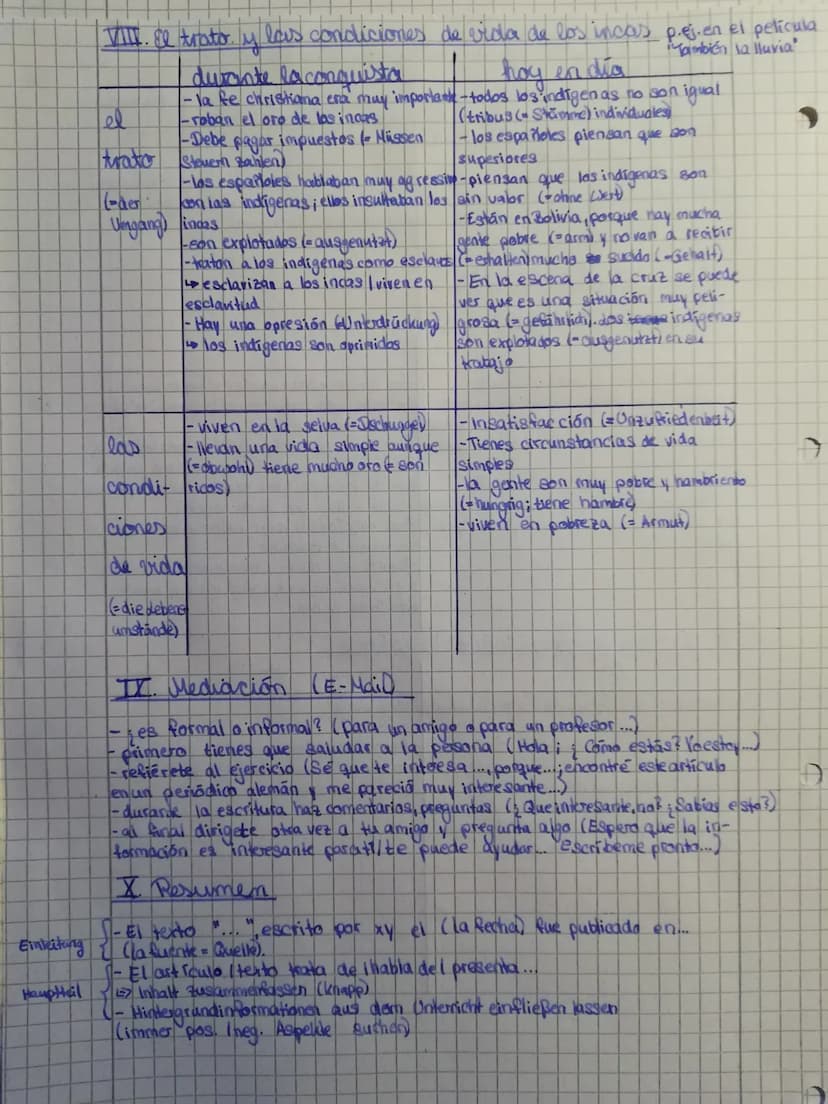 VIII. El trato y las condiciones de vida de los incas p.ej. en el película
"También la lluvia"
durante la conquista
hoy en día
el
trato
(=der
Umgang)
- la fe christiana era muy importante
- roban el oro de las incas
- Debe pagar impuestos (= Müssen
Steuern zahlen)
- los españoles hablaban muy agressiv
con las indígenas; ellos insultaban los
incas
- son explotados (= ausgenutzt)
- tratan a los indígenas como esclavos
↳ esclavizan a los incas / viven en
esclavitud
- Hay una opresión (Unterdrückung)
↳ los indígenas son oprimidos
- todos los indígenas no son igual
(tribus (= Stämme) individuales)
- los españoles piensan que son
superiores
- piensan que los indígenas son
sin valor (= ohne Wert)
- Están en Bolivia, porque hay mucha
gente pobre (= arm) y no van a recibir
(= erhalten) mucho sueldo (= Gehalt)
- En la escena de la cruz se puede
ver que es una situación muy peli-
grosa (= gefährlich). Los indígenas
son explotados (= ausgenutzt) en su
trabajo
las
condi-
ciones
de vida
(= die Lebens
umstände)
- viven en la selva (= Dschungel)
- llevan una vida simple aunque
(= obwohl) tiene mucho oro (= son
ricos)
- Insatisfacción (= Unzufriedenheit)
- Tienes circunstancias de vida
simples
- la gente son muy pobre y hambriento
(= hungrig; tiene hambre)
- viven en pobreza (= Armut)
IX. Mediación (E-Mail)
- ¿es formal o informal? (para un amigo o para un profesor...)
- primero tienes que saludar a la persona (Hola; ¿Cómo estás? Yo estoy...)
- refiérete al ejercicio (Sé que te interesa..., porque...; encontré este artículo
en un periódico alemán y me pareció muy interesante...)
- durante la escritura haz comentarios, preguntas (¿Que interesante, no? ¿Sabías esto?)
- al final dirigete otra vez a tu amigo y pregunta algo (Espero que la in-
formación es interesante para ti / te puede ayudar... escríbeme pronto...)
X Resumen
Einleitung
- El texto "...", escrito por xy el (la fecha) fue publicado en...
(la fuente = Quelle).
Hauptteil
- El artículo / texto trata de / habla de / presenta...
=> Inhalt zusammenfassen (knapp)
- Hintergrundinformationen aus dem Unterricht einfließen lassen
(immer pos. / neg. Aspekte suchen)